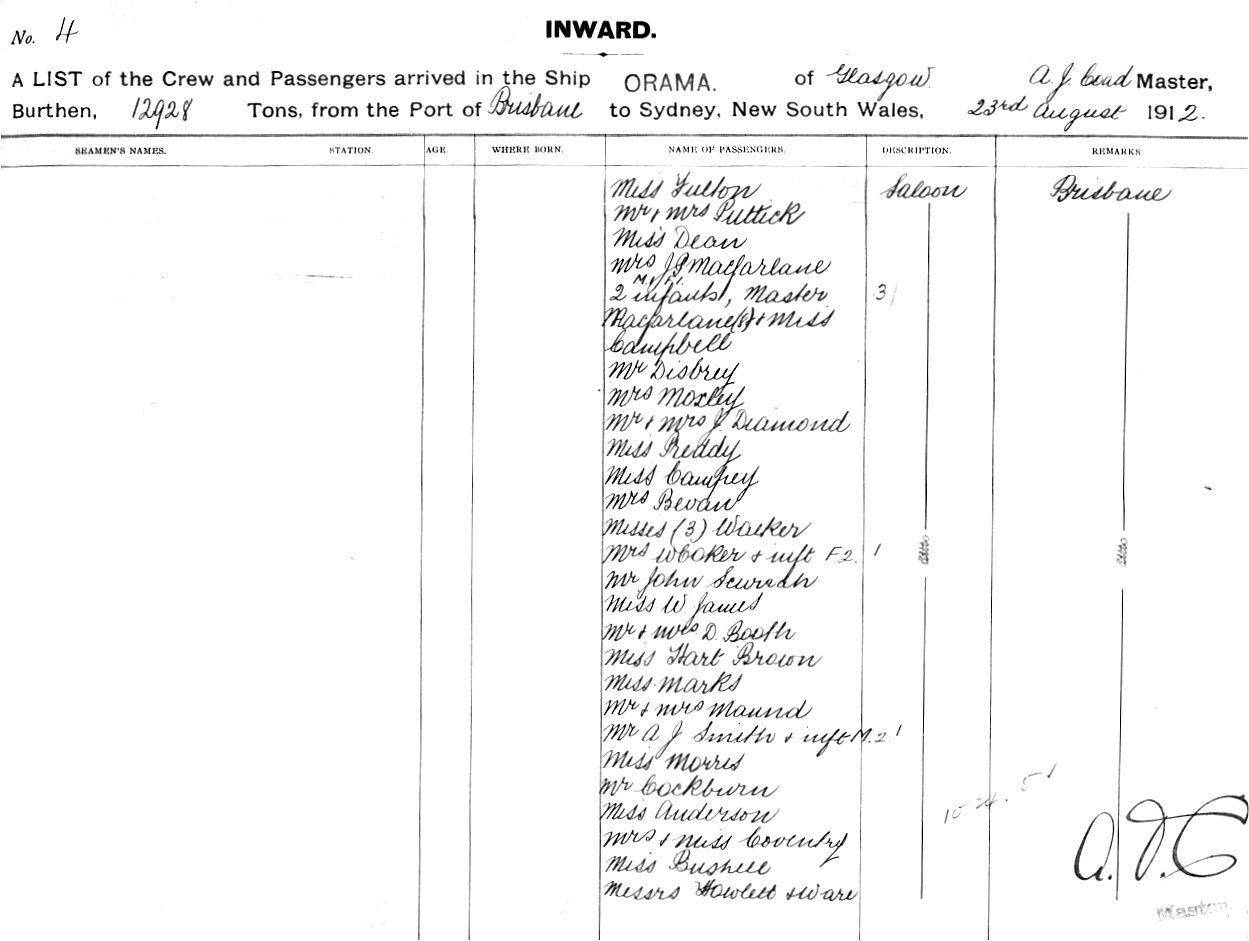 No. 4
INWARD.
A LIST of the Crew and Passengers arrived in the Ship ORAMA. of Glasgow A. J. Coad Master,
Burthen, 12928 Tons, from the Port of Brisbane to Sydney, New South Wales, 23rd August 1912.
SEAMEN'S NAMES. STATION. AGE. WHERE BORN. NAME OF PASSENGERS. DESCRIPTION. REMARKS.
Miss Fulton Saloon Brisbane
Mr & Mrs Puttick
Miss Dean
Mrs J G Macfarlane
M. & F.
2 infants, Master 3
Macfarlane (8) & Miss
Campbell
Mr Disbrey
Mrs Moxley
Mr & Mrs J. Diamond
Miss Preddy
Miss Campey
Mrs Bevan
Misses (3) Walker
Mrs W Coker & inft F 2. 1
Mr John Scurrah
Miss W James
Mr & Mrs D. Booth
Miss Hart Brown
Miss Marks
Mr & Mrs Maund
Mr A J Smith & inft M. 2. 1
Miss Morris
Mr Cockburn
Miss Anderson
10 - 24. 5 1
Mrs & Miss Coventry
Miss Bushell
Messrs Howlett & Ware
A. J. C
Master.